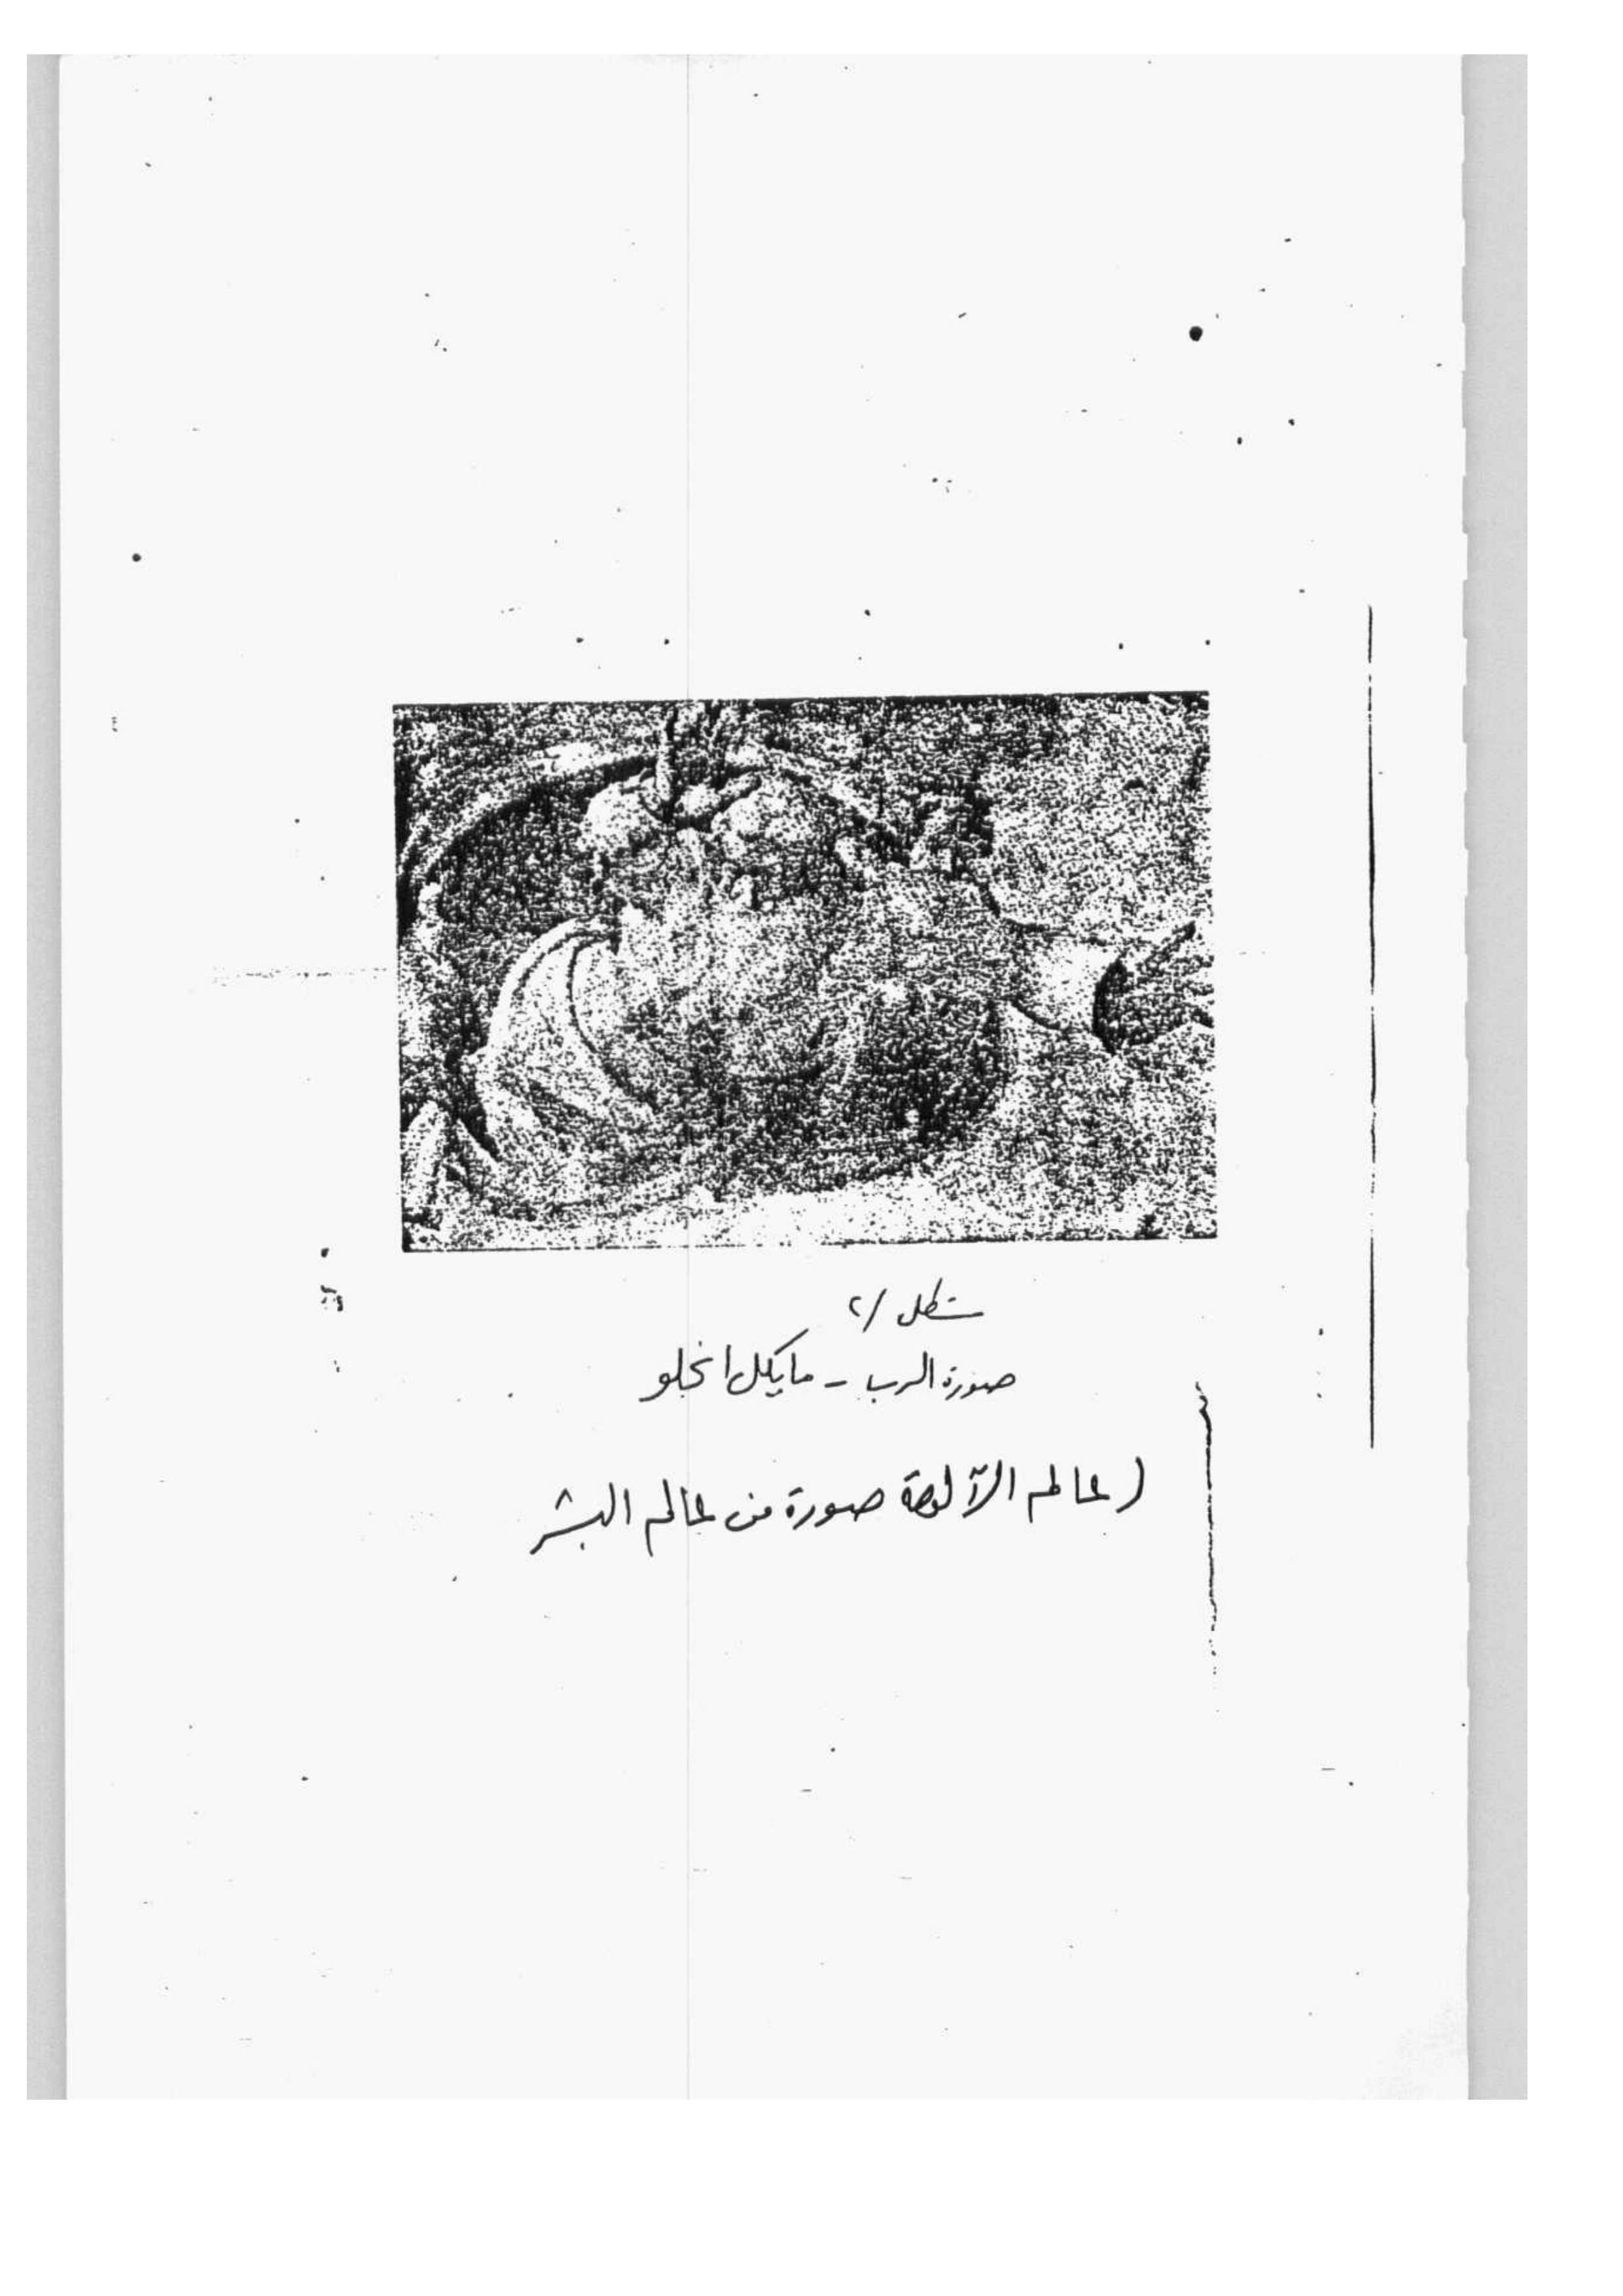 شكل /٢
صورة الرب - مايكل انجلو
( عالم الآلهة صورة من عالم البشر